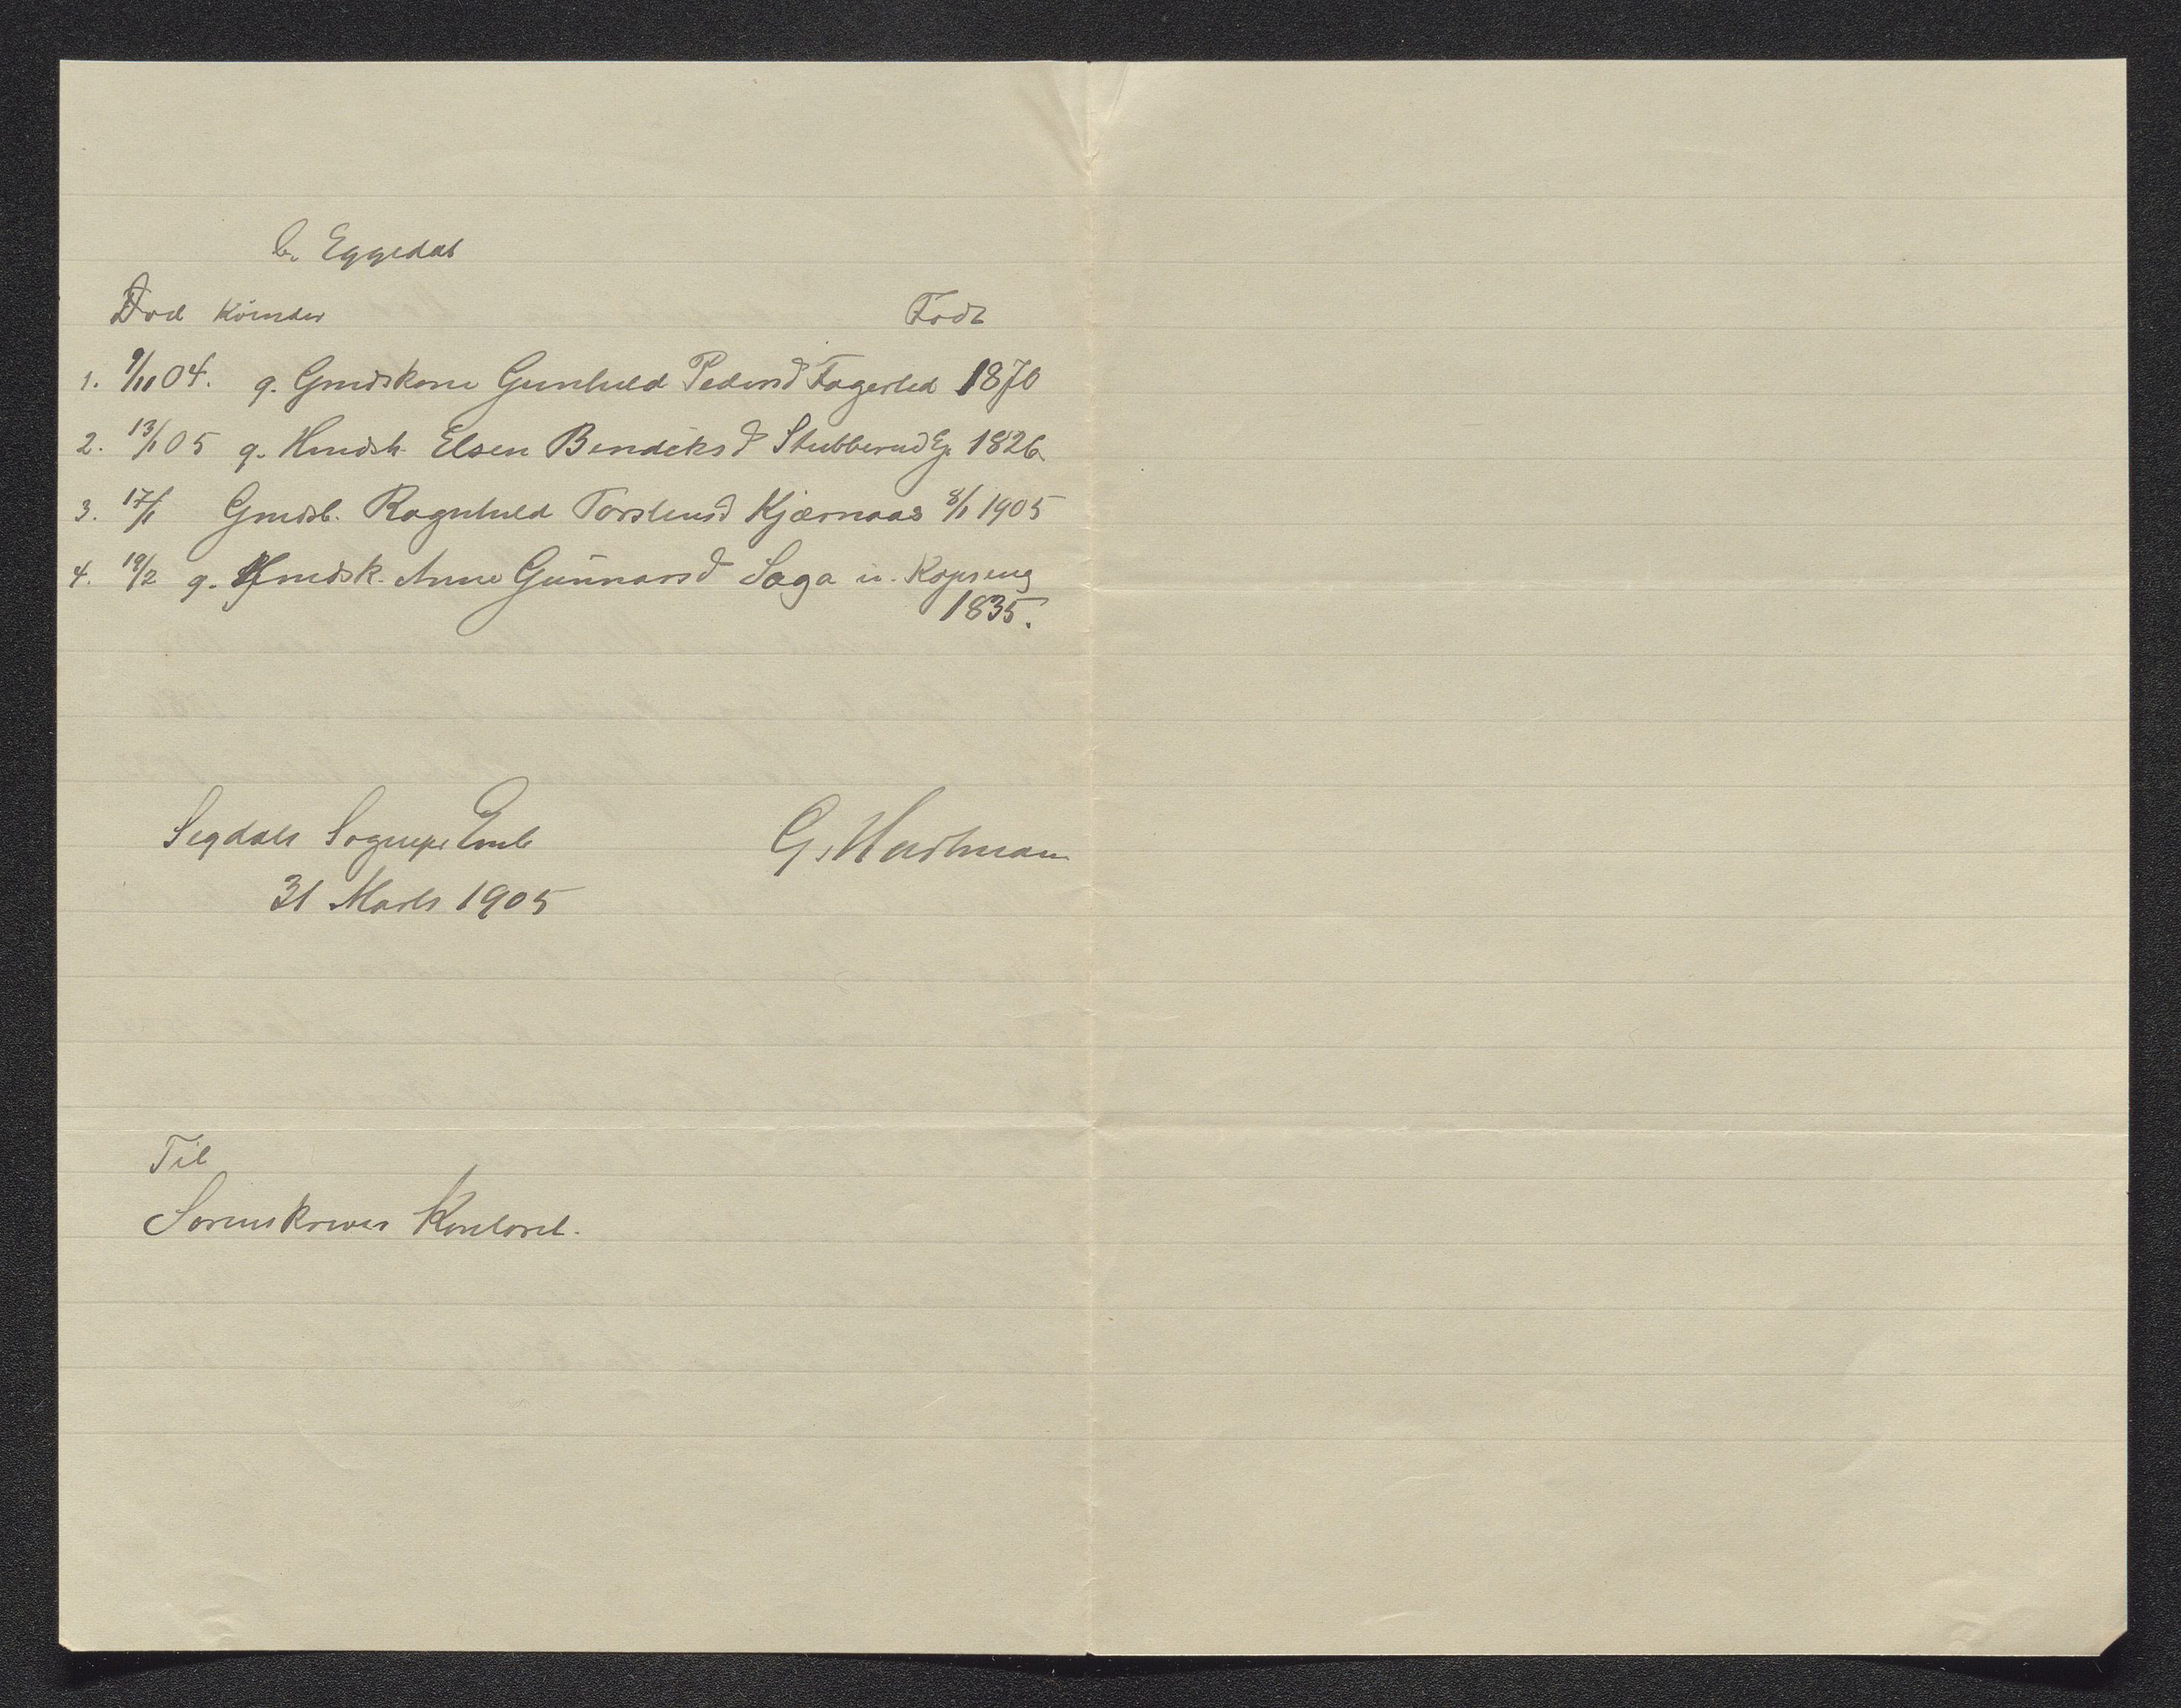 b. Eggedal
Død Kvinder Født
1. 9/11 04. g. Gmdskone Gunhild Pedersd Fagerlid 1870
2. 13/1 05 g. Hmdsk. Elsen Bendiksd Stubberud Eje 1826
3. 17/1 Gmdsb. Ragnhild Torstensd Kjærnaas 8/1 1905
4. 19/2 g. Hmdsk. Anne Gunnarsd Saga u. Kopseng
1835.
Sigdals Sognepr. Emb G. Hartmann
31 Marts 1905
Til
Sorenskriver Kontoret.